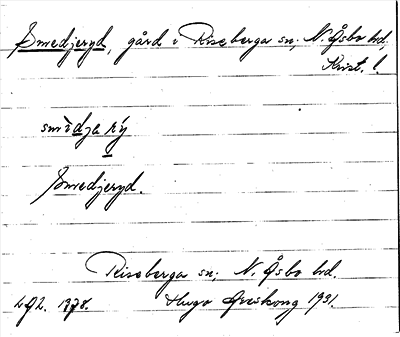 Smedjeryd, gård i Riseberga sn, N. Åsbo hd,
Krist. l.
smìdja rý
Smedjeryd.
Riseberga sn, N. Åsbo hd.
Hugo Areskoug 1931.